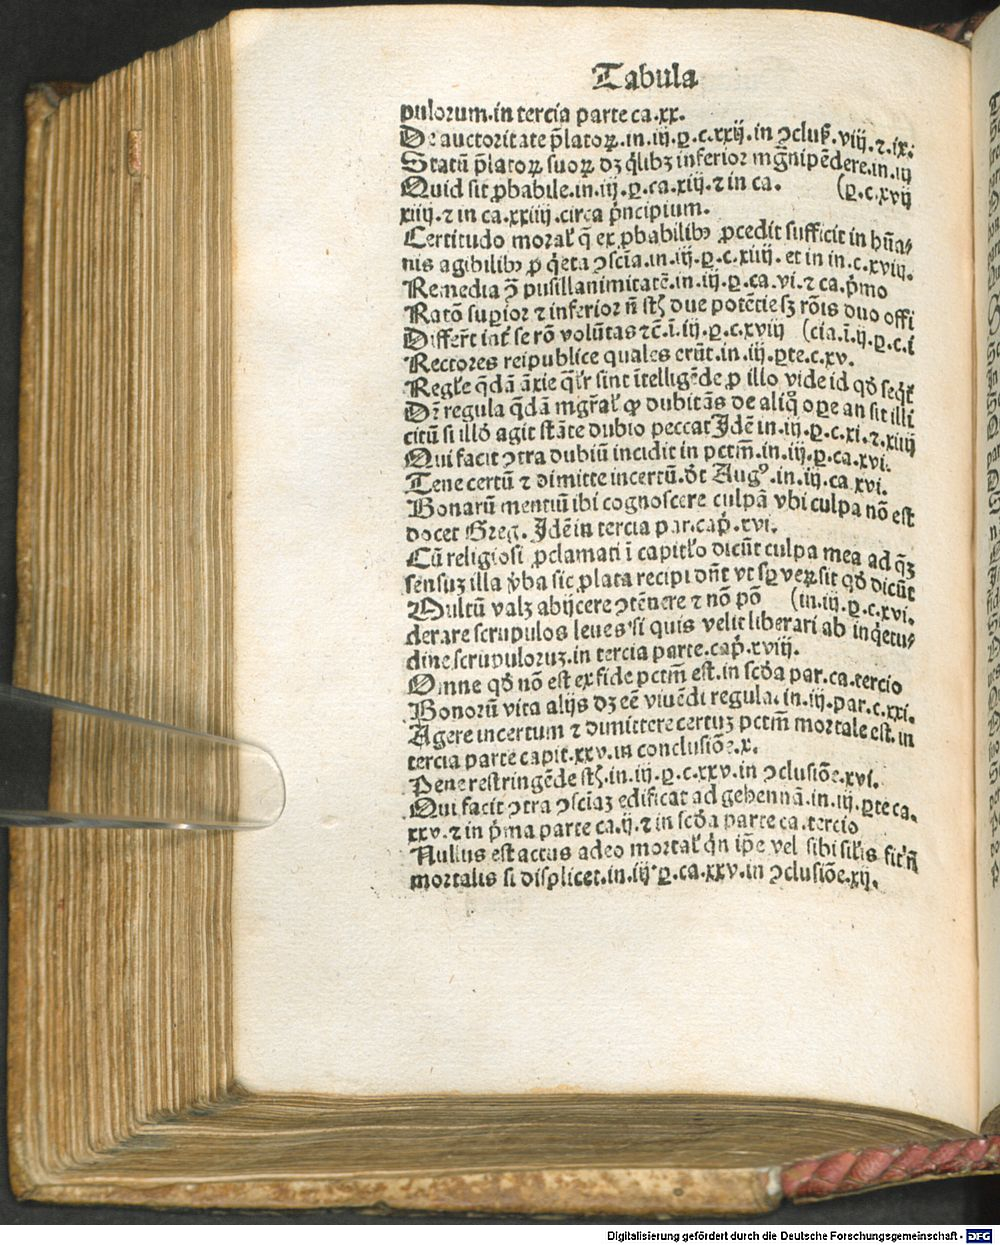 Tabula
pulorum.in tercia parte ca.xx.
De auctoritate p̄latoꝝ.in.iij.ꝑ.c.xxij.in ꝯcluſ.viij.⁊.ix.
Statū p̄latoꝝ suoꝝ dꝫ q̄libꝫ inferior mḡnipēdere.in.iij
Quid sit ꝓbabile.in.iij.ꝑ.ca.xiij.⁊ in ca. (ꝑ.c.xvij
xiiij.⁊ in ca.xxiiij.circa p̄ncipium.
Certitudo moral' q̄ ex ꝓbabilibꝰ ꝓcedit sufficit in hūa⸗
nis agibilibꝰ ꝓ q̇eta ꝯscīa.in.iij.ꝑ.c.xiiij. et in in.c.xviij.
Remedia ꝯ̄ pusillanimitatē.in.iij.ꝑ.ca.vi.⁊ ca.p̄mo
Ratō suꝑior ⁊ inferior n̄ st̄ due potētie sꝫ rōis duo offi
Differūt int' se rō volūtas ⁊c̄.ī.iij.ꝑ.c.xviij (cia.ī.ij.ꝑ.c.i
Rectores reipublice quales erūt.in.iij.ꝑte.c.xv.
Regl'e q̄dā āxie q̄l'r sint ītelligēde ꝓ illo vide id qḋ seq̄t'
Dr̄ regula q̄dā mgr̄al' ꝙ dubitās de aliq̊ oꝑe an sit illi
citū si illḋ agit stāte dubio peccat Idē in.iij.ꝑ.c.xi.⁊.xiiij
Qui facit ꝯtra dubiū incidit in pctm̄.in.iij.ꝑ.ca.xvi.
Tene certū ⁊ dimitte incertū.ḋt Augꝰ.in.iij.ca.xvi.
Bonarū mentiū ibi cognoscere culpā vbi culpa nō est
docet Greg. Idē in tercia par.cap̄.xvi.
Cū religiosi ꝓclamati ī capitl'o dicūt culpa mea ad q̄ꝫ
sensuꝫ illa v̇ba sic ꝓlata recipi dn̄t vt sꝑ veꝝ sit qḋ dicūt
Multū valꝫ abijcere ꝯtēnere ⁊ nō pō (in.iij.ꝑ.c.xvi.
derare scrupulos leues si quis velit liberari ab inq̇etu⸗
dine scrupuloruꝫ.in tercia parte.cap̄.xviij.
Omne qḋ nō est ex fide pctm̄ est.in scḋa par.ca.tercio
Bonorū vita alijs dꝫ eē viuēdi regula.in.iij.par.c.xxi.
Agere incertum ⁊ dimittere certuꝫ pctm̄ mortale est.in
tercia parte capit.xxv.in conclusiōe.x.
Pene restringēde st̄.in.iij.ꝑ.c.xxv.in ꝯclusiōe.xvi.
Qui facit ꝯtra ꝯsciaꝫ edificat ad gehennā.in.iij.ꝑte ca.
xxv.⁊ in p̄ma parte ca.ij.⁊ in scḋa parte ca.tercio
Nullus est actus adeo mortal' q̇n ip̄e vel sibi sil'is fit n̄
mortalis si displicet.in.iij.ꝑ.ca.xxv.in ꝯclusiōe.xij.
Digitalisierung gefördert durch die Deutsche Forschungsgemeinschaft - DFG